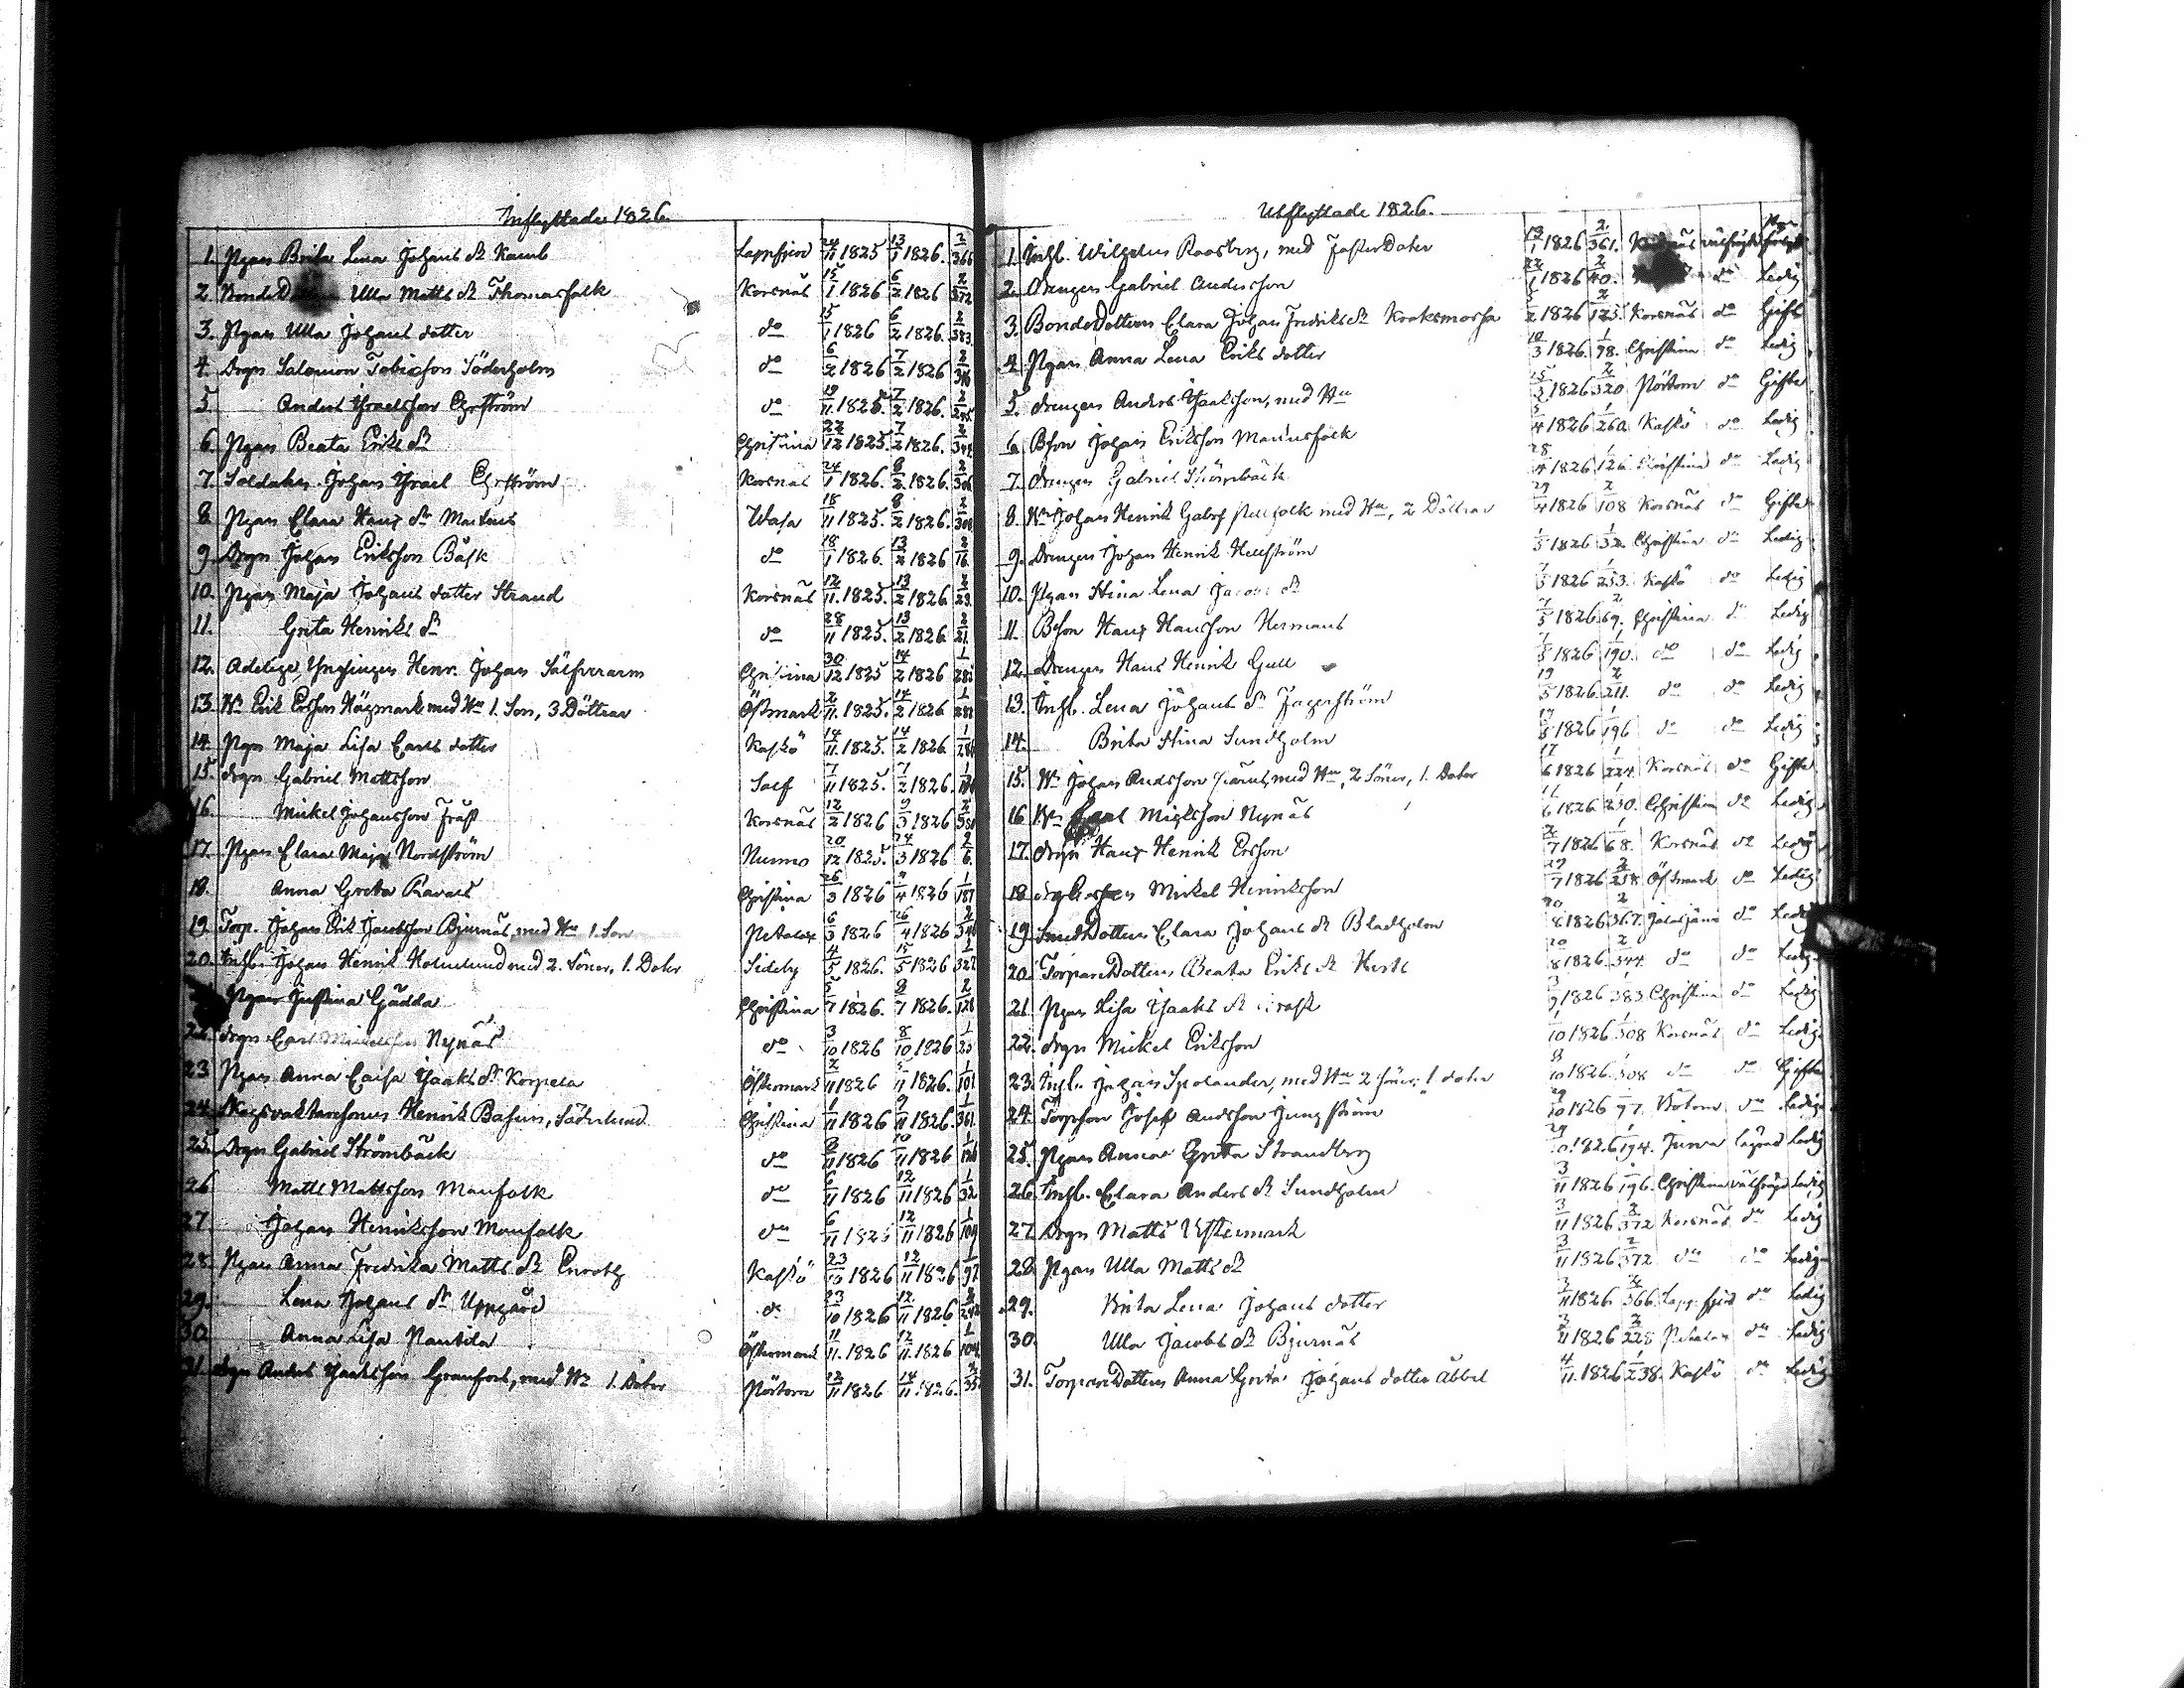 Inflyttade 1826.
1. Pgan Brita Lena Johans dr Kamb Lappfjerd 24/11 1825 13/1 1826. 2/366
2. Bonde Ulla Matts dr Thomasfolk Korsnäs 15/1 1826 6/2 1826 2/372
3. Pgan Ulla Johans dotter do 15/1 1826 6/2 1826. 2/383.
4. Drgn Salomon Tobiasson Söderholm do 6/2 1826 7/2 1826 2/316
5. Anders Israelsson Ehrström do 19/11 1825. 7/2 1826. 2/245
6. Pgan Beata Eriks dr Christina 22/12 1825. 7/2 1826. 2/344
7. Soldaten Johan Israel Ehrström Korsnäs 24/1 1826. 8/2 1826. 2/306
8. Pgan Clara Hans dr Wasa 18/11 1825. 8/2 1826. 2/308
9. Drgn Johan Eriksson Bäsk do 18/1 1826. 13/2 1826 2/16.
10. Pgan Maja Johans dotter Strand Korsnäs 12/11 1825. 13/2 1826. 2/23.
11. Greta Henriks dr do 28/11 1825. 13/2 1826. 2/21.
12. Adelige Ynglingen Henr. Johan Silfverarm Christina 30/12 1825 14/2 1826 1/285
13. Erik Ersson Högmark med Hu 1. Son, 3 Döttrar Östmark 2/11 1825. 14/2 1826 1/282
14. Pgn Maja Lisa Carls dotter Kaskö 14/11 1825. 14/2 1826. 1/286
15. drgn Gabriel Mattsson Solf 7/11 1825. 7/2 1826.
16. Mickel Johansson Fräst Korsnäs 12/2 1826 9/3 1826 2/381
17. Pgan Clara Maja Nordström Nurmo 20/12 1825. 24/3 1826 2/6.
18. Anna Greta Ravals Christina 26/3 1826 4 1826 1/187
19. Torp. Johan Erik Jacobsson Bjurnäs, med Hu 1. Son Petalax 6/3 1826 16/4 1826 2/346
20. Inhl. Johan Henrik Holmlund med 2. Söner, 1. Doter Sideby 4/5 1826. 15/5 1826 1/327
Pgan Justina Gädda Christina 5/7 1826. 8/7 1826. 2/128
22. drgn Carl Nynäs do 3/10 1826 8/10 1826
23 Pgan Anna Caisa Isaks dr Korpela Östermark 2/11 1826 5/11 1826. 1/101
24. Henrik Basun, Söderlund Christina 1/11 1826 9/11 1826. 1/361
25. Drgn Gabriel Strömbäck do 8/11 1826 10/11 1826 1/126
26 Matts Mattsson Manfolk do 6/11 1826 12/11 1826 1/32
27 Johan Henriksson Manfolk do 6/11 1825 12/11 1826 1/109
28. Pgan Anna Fredrika Matts dr Enroth Kaskö 23/10 1826 12/11 1826 1/97
29. Lena Johans dr Uppgård do 23/10 1826 12/11 1826 2/242
30. Anna Lisa Pantila Östermark 11/11. 1826 12/11. 1826 1/104
31. drgn Anders Isaksson Granfors, med Hu 1. Doter Pörtom 12/11 1826 14/11 1826.
Utflyttade 1826.
1. Inhl. Wilhelm Raasberg, med FosterDoter 13/1 1826 2/361.
2. Drengen Gabriel Andersson 22/1 1826 2/40. do Ledig
3. BondeDottern Clara Johan Fredriks dr Kraksmossa 5/2 1826 2/125. Korsnäs do Gifte
4. Pgan Anna Lena Eriks dotter 10/3 1826. 1/98. Christina do Ledig
5. drengen Anders Isaksson, med Hu 15/3 1826 2/320 Pörtom do Gifte
6. Bson Johan Eriksson Mannsfolk 5/4 1826 1/260. Kaskö do Ledig
7. drengen Gabriel Strömbäck 28/4 1826 1/126 Christina do Ledig
8. Johan Henrik Gabrs med Hu, 2 Döttrar 29/4 1826 2/108 Korsnäs do Gifte
9. Drengen Johan Henrik Hellström 1/5 1826 1/32. Christina do Ledig
10. Pgan Stina Lena Jacobs dr 7/5 1826 1/253. Kaskö do Ledig
11. Bson Hans Hansson Hermans 7/5 1826 2/69. Christina do Ledig
12. Drengen Hans Henrik Gull 7/5 1826 1/190. do do Ledig
13. Inhl. Lena Johans dr Fagerström 19/5 1826. 2/211. do do Ledig
14. Brita Stina Sundholm 1826 1/196 do do Ledig
15. Johan Andsson med Hu, 2 Söner, 1. Doter 17/6 1826 1/224. Korsnäs do Gifte
16 Carl Michsson Nynäs 11/6 1826 1/230. Christina do Ledig
17. drgn Hans Henrik Ersson 2/7 1826 1/68. Korsnäs do Ledig
18. Mickel Henriksson 29/7 1826 2/238. Östmark do Ledig
19. SmedDottern Clara Johans dr Bladholm 20/8 1826 2/367. do Ledig
20. TorpareDottern Beata Eriks dr 20/8 1826 2/344. do do Ledig
21. Pgan Lisa Isaks dr 3/9 1826 1/383 Christina do Ledig
22. drgn Mickel Eriksson 1/10 1826 1/308 Korsnäs do Ledig
23. Inhl. Johan Spolander, med Hu 2 Söner, 1 doter 8/10 1826. 1/308 do do Gifte
24. Torpson Josef Andsson Ljungström 29/10 1826 1/97. Bötom do Ledig
25. Pgan Anna Greta Strandberg 29/10 1826 1/194. Jurva Ledig
26. Inhl. Clara Anders dr Sundholm 3/11 1826 1/196. Christina välfrägd Ledig
27. Drgn Matts Östermark 3/11 1826 2/372 Korsnäs do Ledig
28. Pgan Ulla Matts dr 3/11 1826 2/372 do do Ledig
29. Brita Lena Johans dotter 3/11 1826. 2/366. Lappfjerd do Ledig
30. Ulla Jacobs dr Bjurnäs 3/11 1826 2/228 Petalax do Ledig
31. TorpareDottern Anna Greta Johans dotter Abbel 4/11. 1826 1/238. Kaskö do Ledig